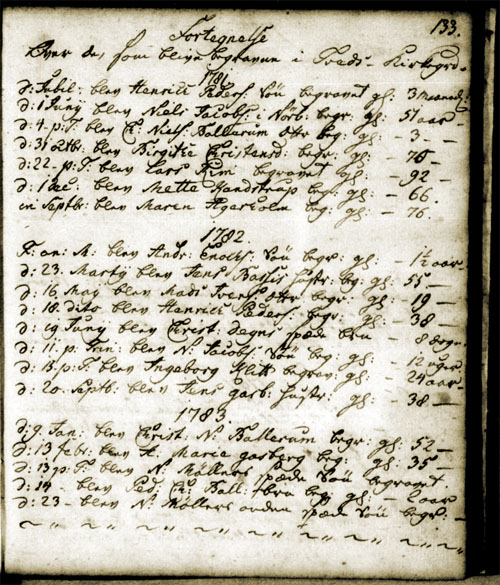 133.
Fortegnelse
Over de, som blive begravne i Tveds Kirkegrd.
1781.
d: Jubil: blev Henrich Peders: Søn begravet gl: 3 Maaned:
d: 1 Juny blev Niels Jacobs: i Nørb: begr: gl: 51 aar
d: 4. p: T. blev Ch: Niels Ballerum Dttr beg: gl: – 3 –
d: 31 Octb: blev Birgitte Christensd: begr: gl: 75 –
d: 22. p: T. blev Lars Kim begravet gl: – 92 –
d: 1 Dec: blev Mette Handstrup beg: gl: – 66.
in Septbr: blev Maren Agerholm beg: gl: – 76.
1782.
F: an: M: blev Andr: Enochs: Søn begr: gl: – 1½ aar
d: 23. Marty blev Jens Hustr: bg: gl: 55 –
d: 16 May blev Mads Ivers: Dttr begr: gl: – 19 –
d: 18 dito blev Henrich Peders: begr: gl: – 38 –
d: 19 Juny blev Christ: Degns spæde 8 dage
d: 11. p: Trin: blev N: Jacobs: Søn beg: gl: – 12 uger
d: 13. p: T. blev Ingeborg Klitt begrav: gl: – 24 aar
d: 20 Septb: blev Jens garb: Hustr: gl: – 38 –
1783.
d: 9. Jan: blev Christ: N: Ballerum begr: gl: 52 –
d: 13 febr: blev Marie gasberg beg: gl: 35 –
d: 13 p: T. blev N: Møllers spæde Søn begravet
d: 14 – blev Ped: Ch: Ball: beg gl: – 2 aar
d: 23 – blev N: Møllers anden spæde Søn begr: –